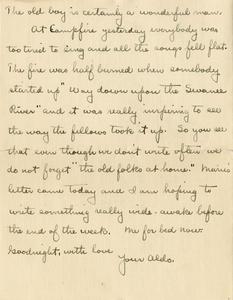 The old boy is certainly a wonderful man.
At Campfire yesterday everybody was
too tired to sing and all the songs fell flat.
The fire was half burned when somebody
started up "Way down upon the Swanee
River" and it was really inspiring to see
the way the fellows took it up. So you see
that even though we don't write often we
do not forget "the old folks at home." Marie's
letter came today and I am hoping to
write something really wide-awake before
the end of the week. Me for bed now.
Goodnight, with love
Your Aldo.